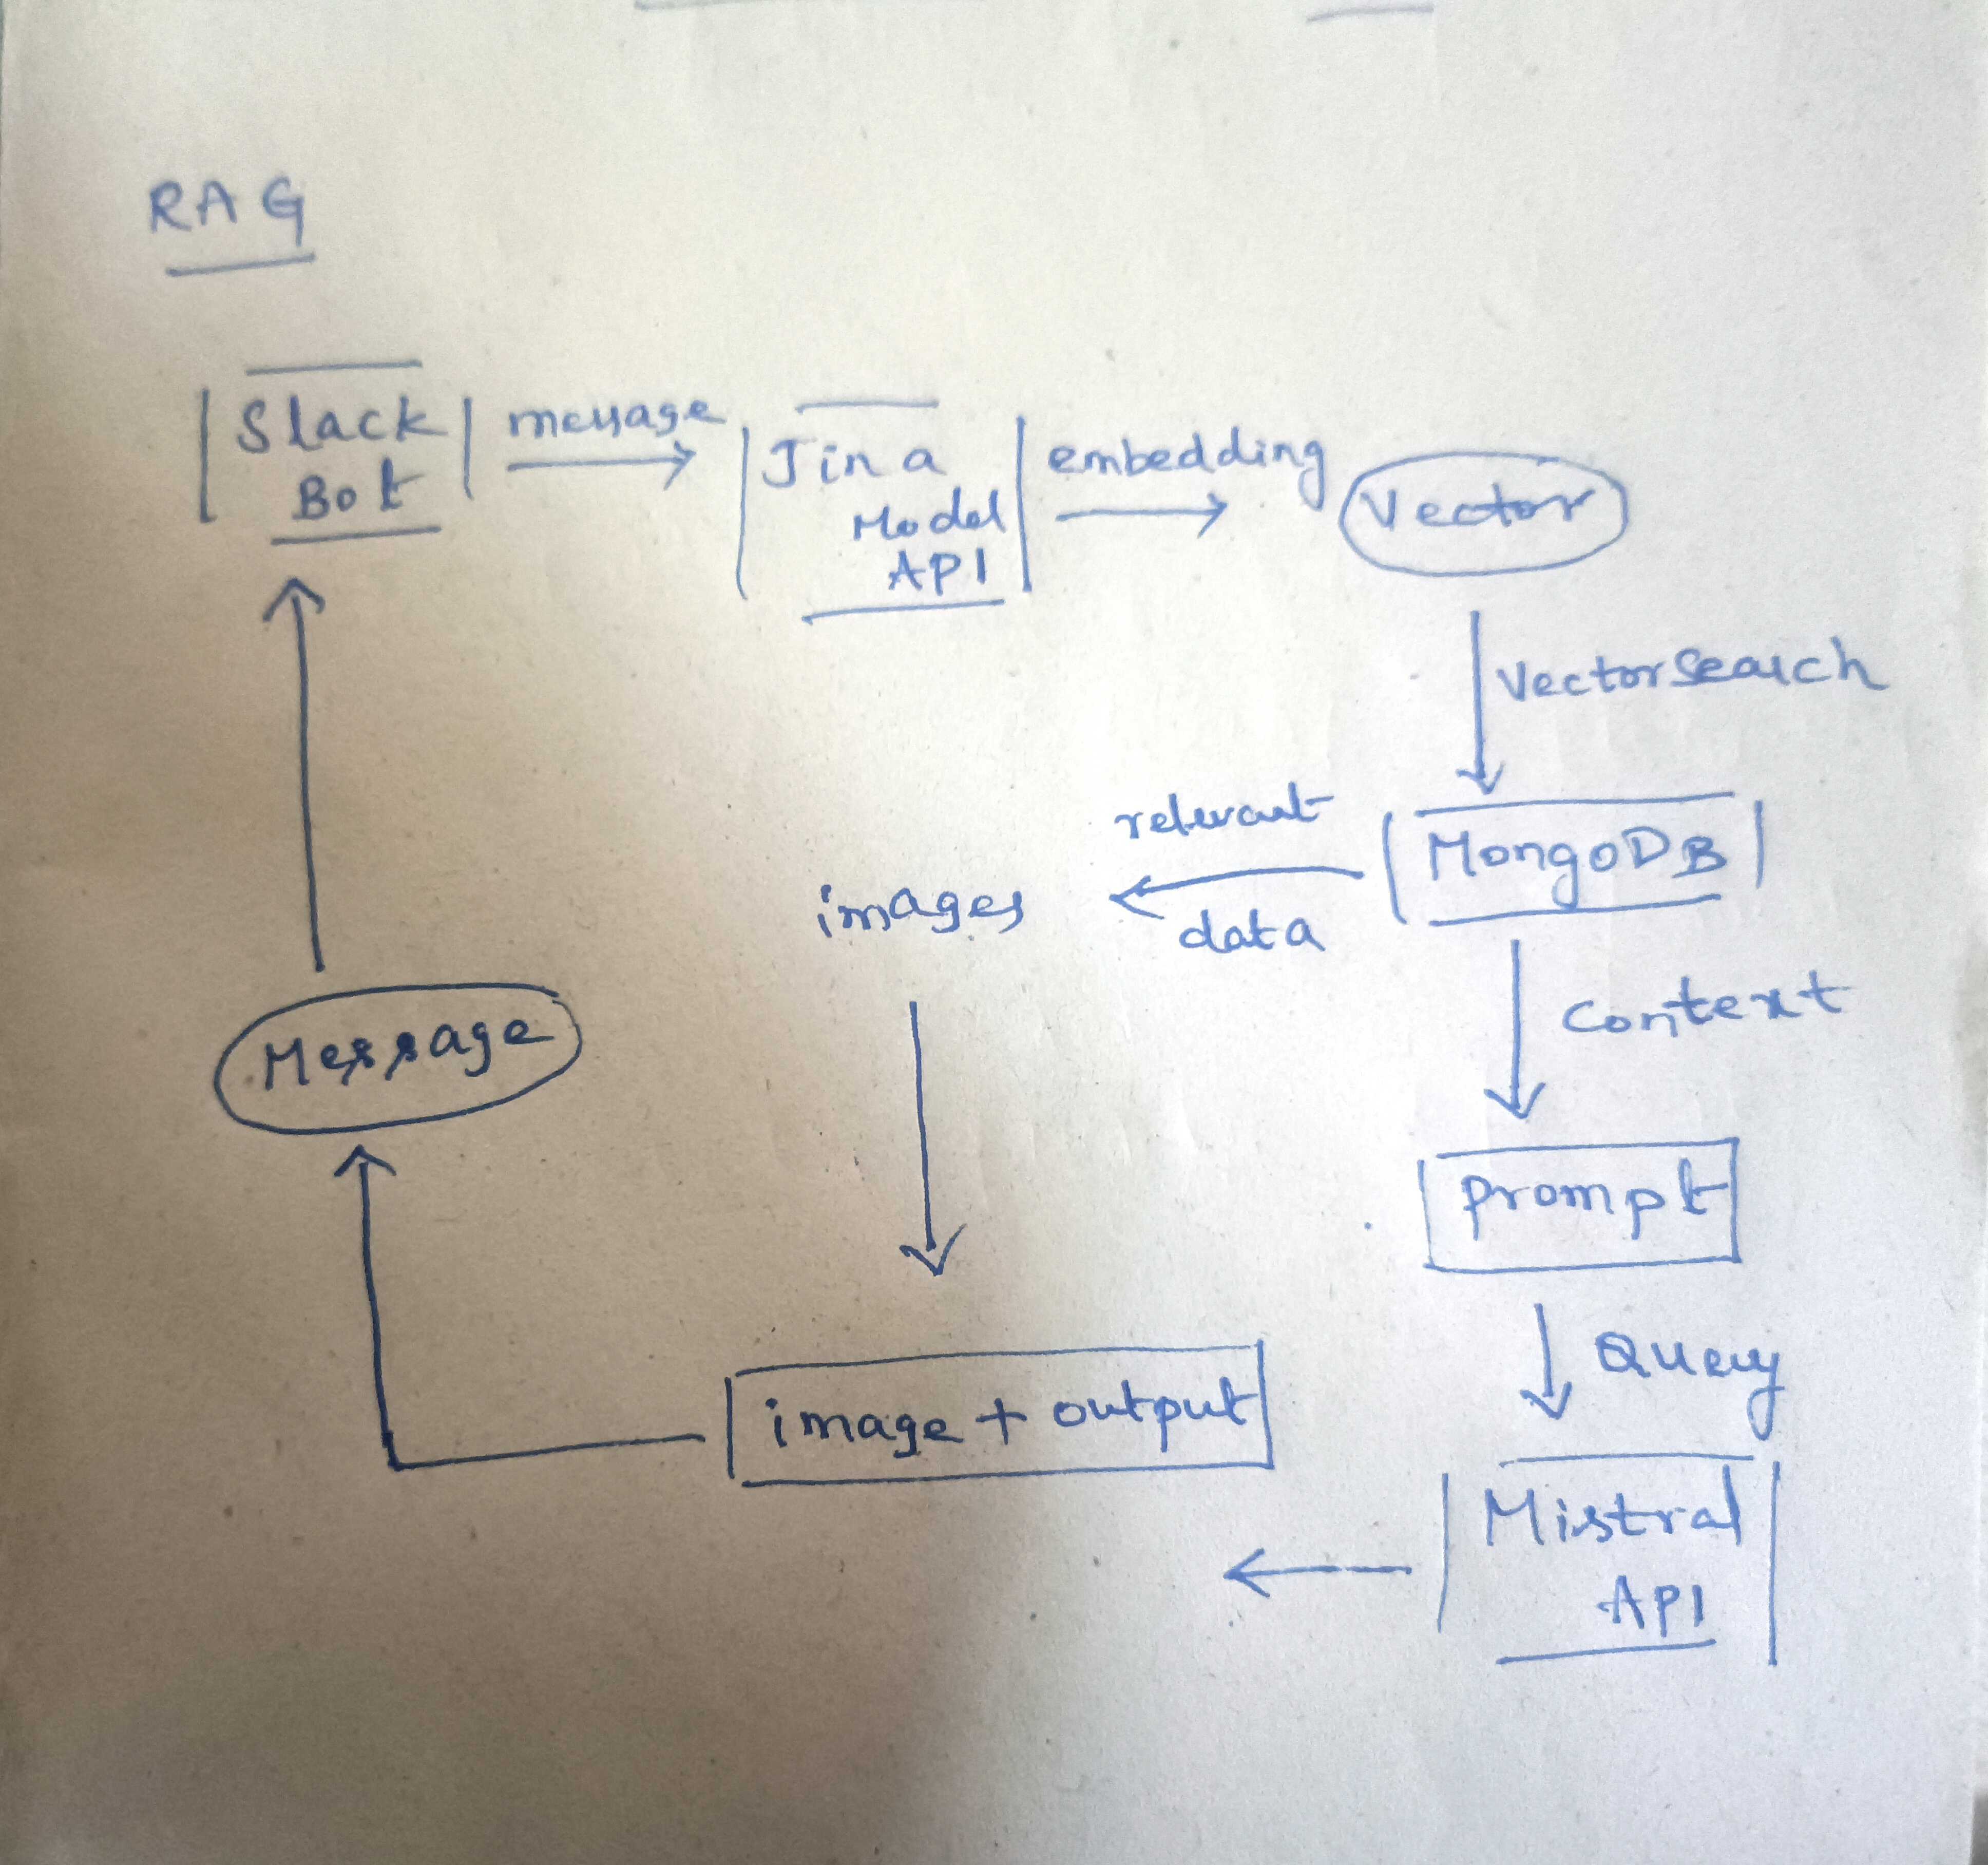 RAG
Slack
Bot
message
Jina
Model
API
embedding
Vector
Vectorsearch
MongoDB
relevant
data
images
Context
prompt
Query
Mistral
API
image + output
Message